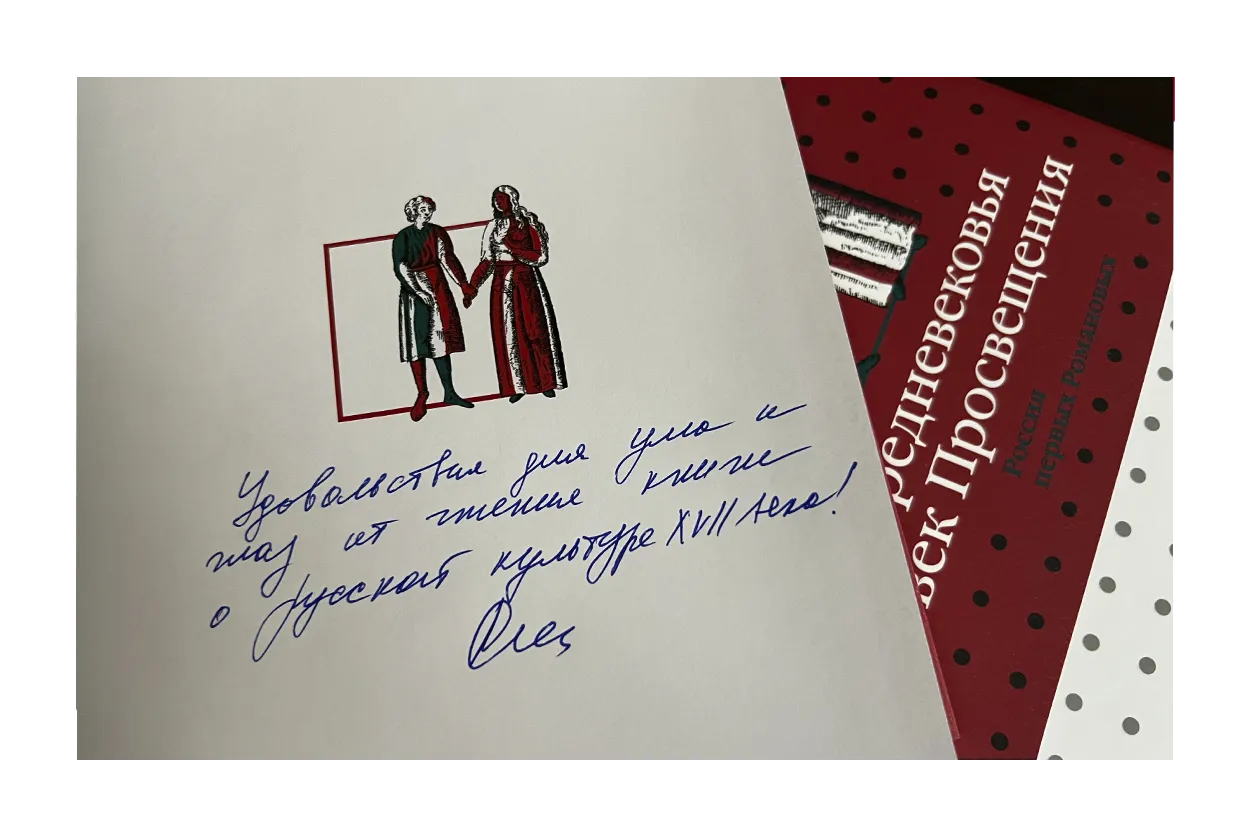 Удовольствия для ума и
глаз от чтения книги
о русской культуре XVII века!
редневековья
век Просвещения
России
первых Романовых